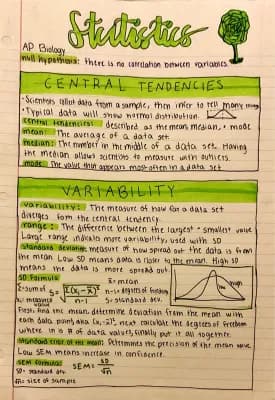 Statistics
AP Biology
null hypothesis: There is no correlation between variables.
CENTRAL TENDENCIES
- Scientists collect data from a sample, then infer to tell many things
- Typical data will show normal distribution.
central tendencies: described as the mean, median, + mode
mean: The average of a data set.
median: The number in the middle of a data set. Having
the median allows scientists to measure with outliers.
mode: The value that appears most often in a data set
VARIABILITY
variability: The measure of how far a data set
diverges from the central tendency.
range: The difference between the largest + smallest value
Large range indicates more variability, used with SD
standard deviation: measure of how spread out the data is from
the mean. Low SD means data is closer to the mean. High SD
means the data is more spread out.
SD Formula
Σ=sum of
S = √Σ(xᵢ-x̄)²/n-1
x̄=mean
n-1=degrees of freedom
S=standard dev.
xᵢ=measured value
low
high
First, find the mean, determine deviation from the mean with
each data point aka (xᵢ-x̄)², next calculate the degrees of freedom
where n is # of data values, finally put it all together.
standard error of the mean: Determines the precision of the mean value
Low SEM means increase in confidence.
SEM formula:
SEM = SD/√n
SD= standard dev.
√n= size of sample